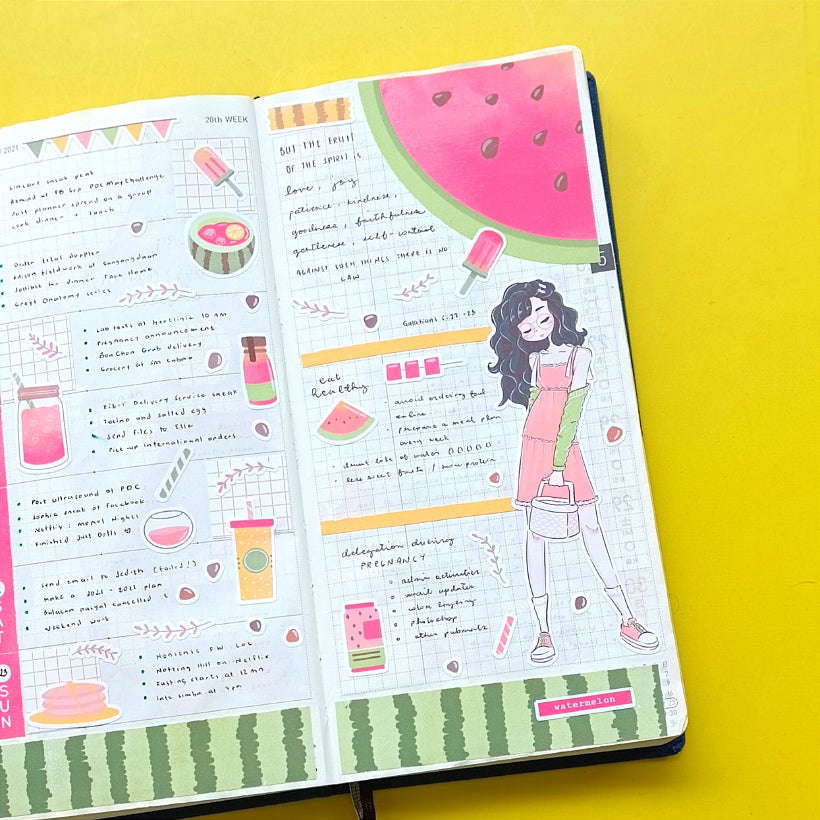 2021
20th WEEK
sneak peak
Remind at FB Grp PDC May Challenge
Post planner spread on a group
Cook dinner + lunch
Order fetal doppler
Edison fieldwork at
Jollibee for dinner Take Home
Greys Anatomy series
Lab tests at clinic 10 am
Pregnancy announcement
BonChon Grab delivery
Grocery at SM Cubao
Delivery Service sneak
Tocino and salted egg
Send files to Elie
Pick up international orders
Post ultrasound at PDC
Sophie sneak at Facebook
Netflix:
Finished Just Dolls
SAT
Send email to Jedith (failed!)
Make a 2021 - 2022 plan
cancelled
Weekend work
23
SUN
Nonsense FW LOL
Notting Hill on Netflix
Fasting starts at 12 mn
Late simba at 7 pm
BUT THE FRUIT
OF THE SPIRIT is
love, joy
patience, kindness,
goodness, faithfulness
gentleness, self-control
AGAINST SUCH THINGS THERE IS NO
LAW
Galatians 5:22-23
5
eat
healthy
avoid ordering food
online
prepare a meal plan
every week
drink lots of water
less sweet fruits / more protein
delegation during
PREGNANCY
admin activities
email updates
color
photoshop
other
watermelon